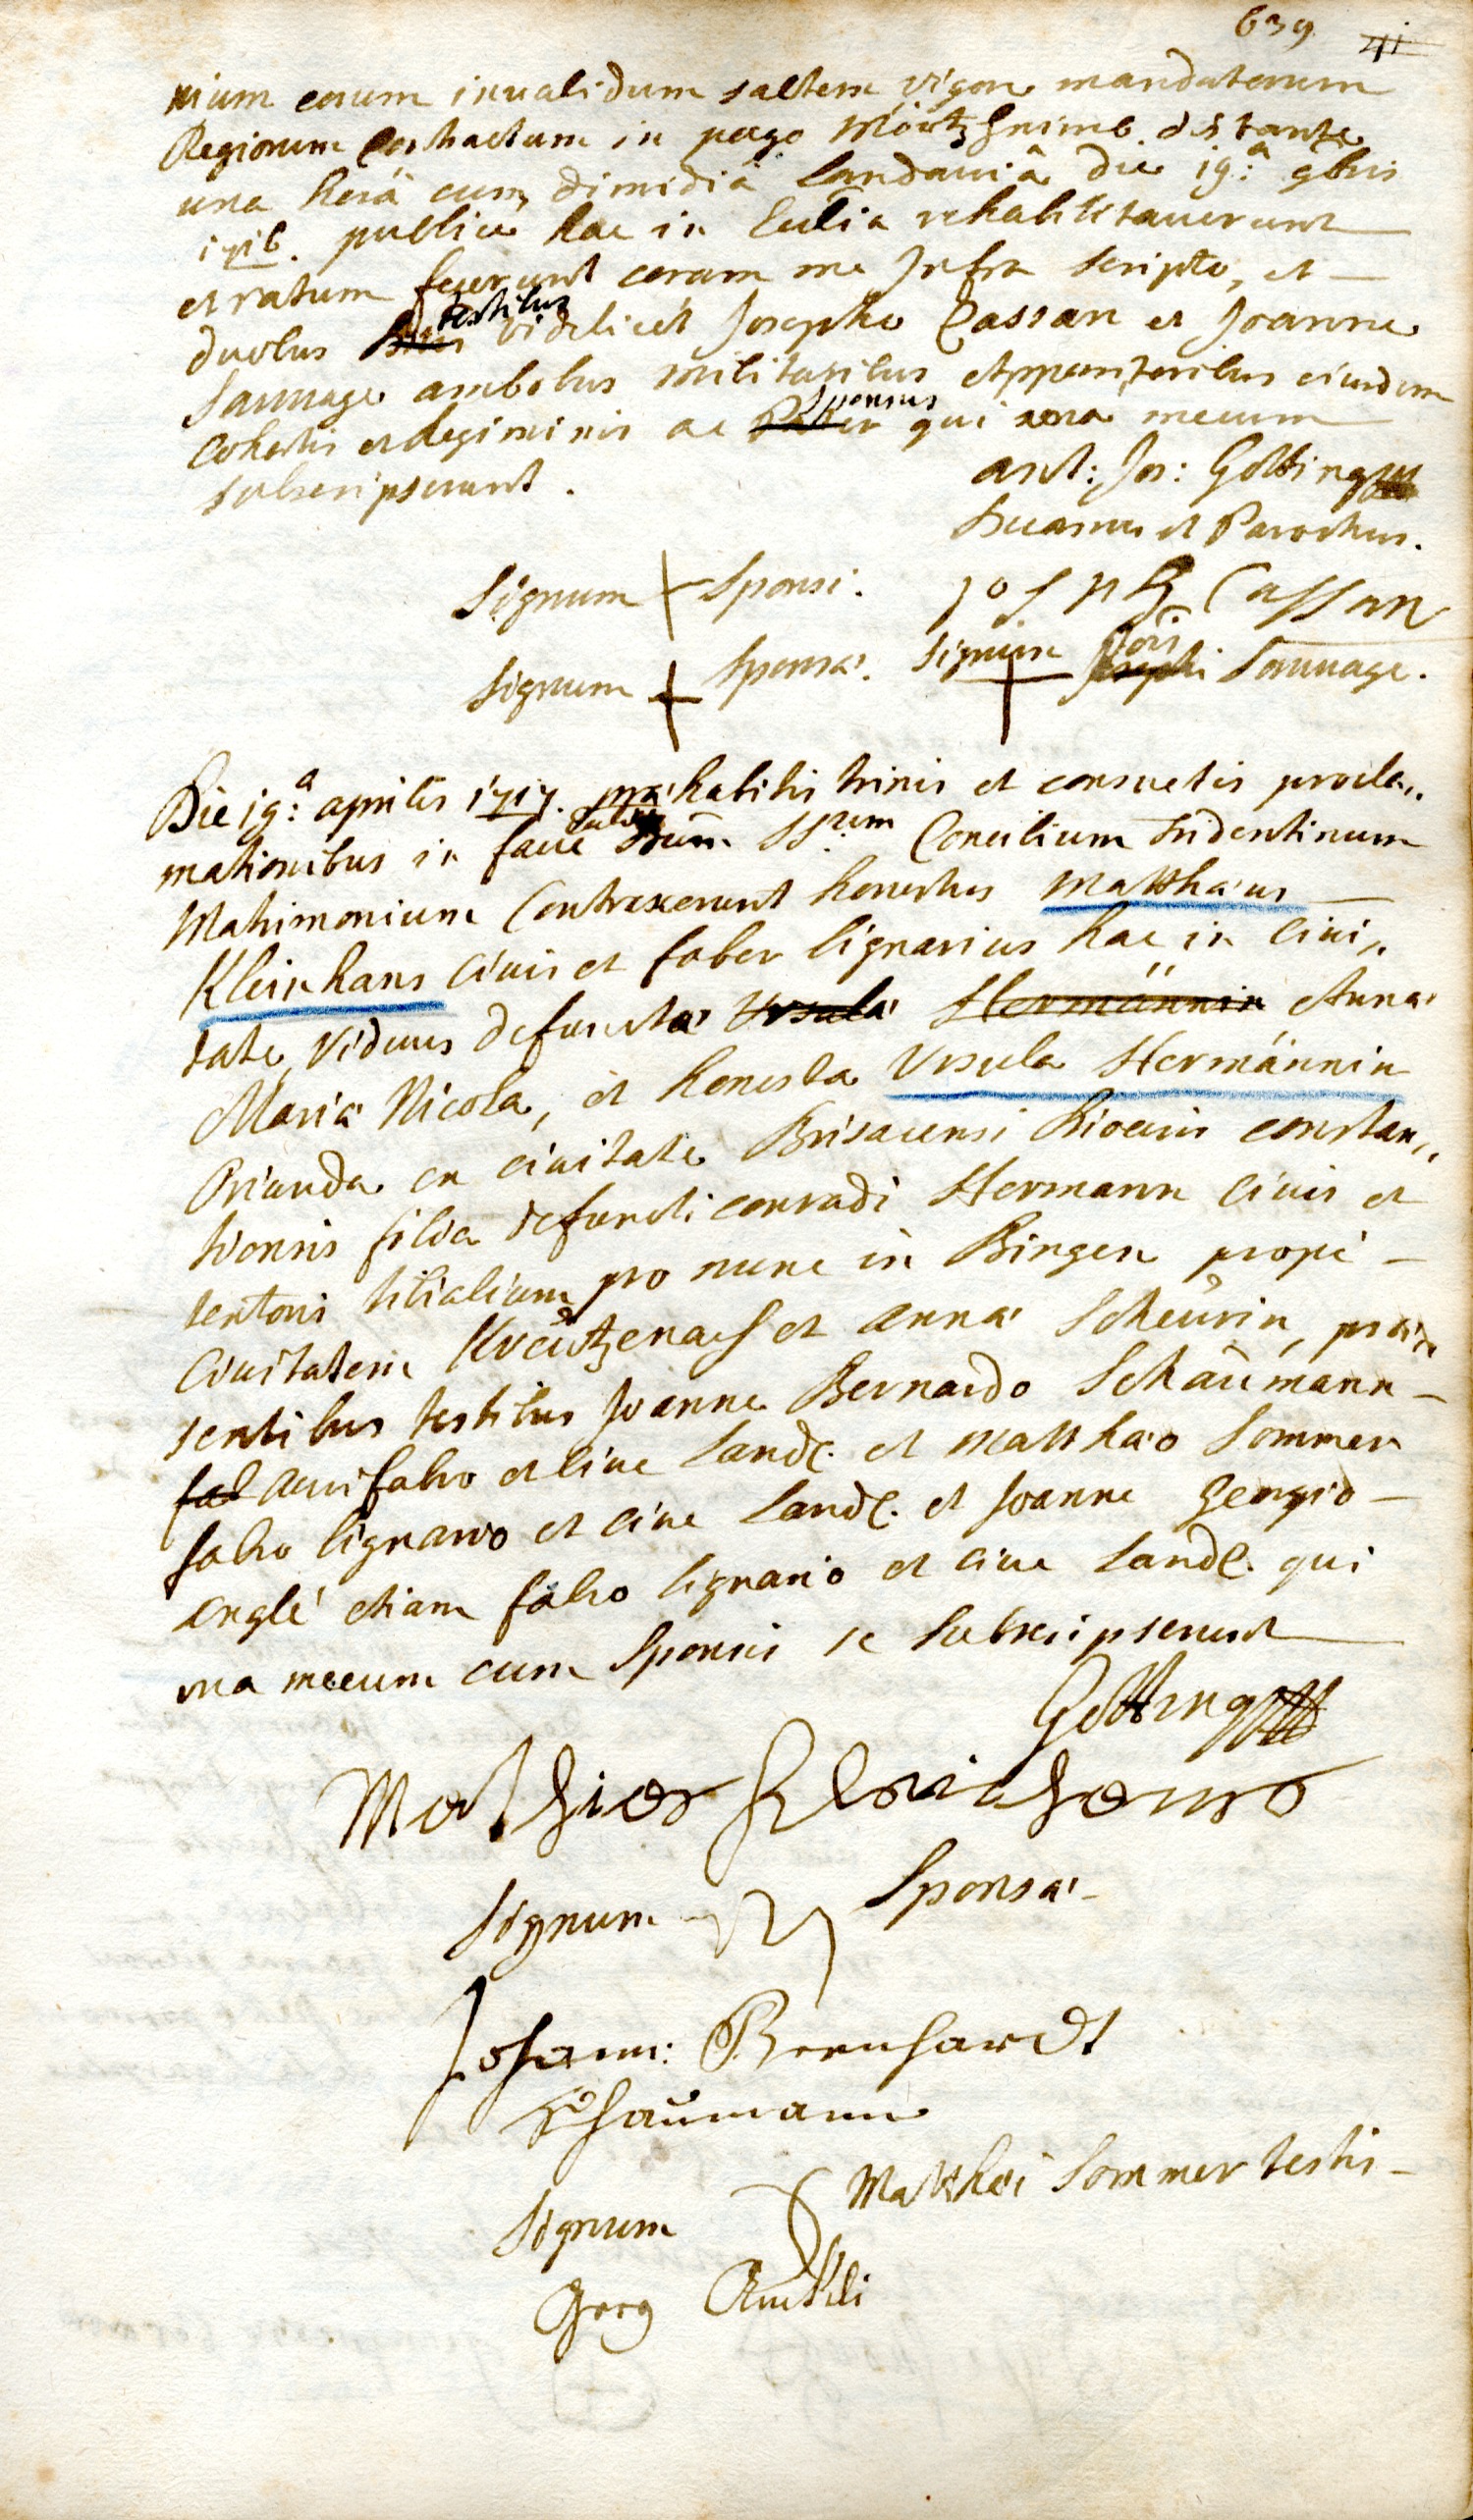 639 41
nium eorum inualidum saltem vigore mandatorum
Regiorum Contractum in pago distante
una horâ cum dimidiâ Landauiâ die 19.â 9bris
1716. publicè hac in Ecclîa rehabilitauerunt
et ratum fecerunt coram me Infra scripto, et
duobus testibus videlicèt Josepho Cassan et Joanne
Sauuage ambobus militaribus Apparitoribus eiusdem
Cohortis et Regiminis ac Pater sponsus qui una mecum
subscripserunt.
ant: Jos: Götting
Decanus et Parochus.
Signum Sponsi. Joseph Cassan
Signum Sponsæ. Signum Joîs Josephi Sauuage.
Die 19.â aprilis 1717. præhabitis trinis et consuetis procla„
mationibus in facie SS.um Concilium Tridentinum
Matrimonium Contraxerunt honestus Matthæus
Kleinhans Ciuis et faber lignarius hac in Ciui„
tate, Viduus defunctæ Ursulæ Hermännin Annæ
Mariæ Nicola, et honesta Ursula Hermännin
Oriunda ex ciuitate Brisacensi Diocesis constan„
tiensis filia defuncti conradi Hermann Ciuis et
pro nunc in Bingen propè
Ciuitatem Kreützenach et Annæ Scheürin, præ„
sentibus testibus Joanne Bernardo Schaümann
fab Aurifabro et Ciue Land. et Matthæo Sommer
fabro lignario et Ciue Land. et Joanne Georgio
Englé etiam fabro lignario et Ciue Land. qui
una mecum cum Sponsis se Subscripserunt
Götting
Mathias Kleinhans
Signum Sponsæ
Johann: Bernhardt
Schaümann
Signum Matthæi Sommer testis
Georg